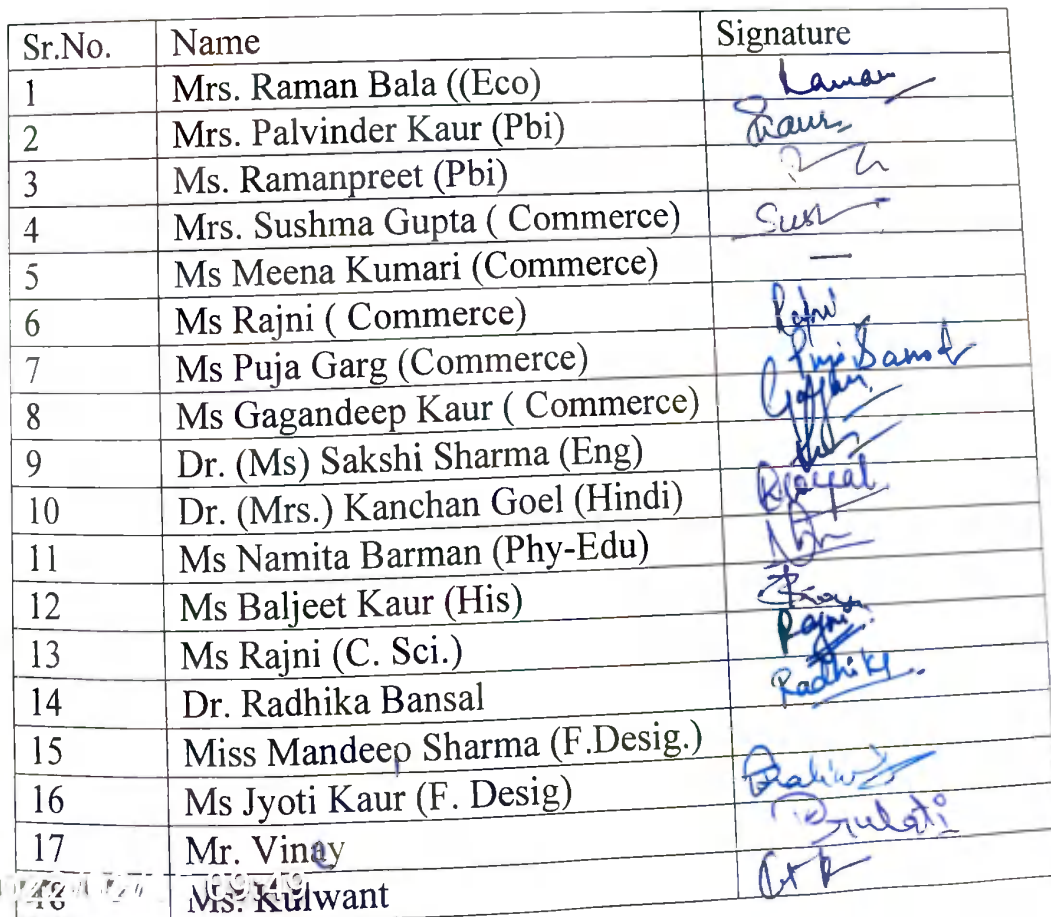 Sr.No. Name Signature
1 Mrs. Raman Bala ((Eco) Raman
2 Mrs. Palvinder Kaur (Pbi) Kaur
3 Ms. Ramanpreet (Pbi)
4 Mrs. Sushma Gupta ( Commerce) Sush
5 Ms Meena Kumari (Commerce) —
6 Ms Rajni ( Commerce) Rajni
7 Ms Puja Garg (Commerce)
8 Ms Gagandeep Kaur ( Commerce)
9 Dr. (Ms) Sakshi Sharma (Eng)
10 Dr. (Mrs.) Kanchan Goel (Hindi)
11 Ms Namita Barman (Phy-Edu)
12 Ms Baljeet Kaur (His)
13 Ms Rajni (C. Sci.) Rajni
14 Dr. Radhika Bansal Radhika
15 Miss Mandeep Sharma (F.Desig.)
16 Ms Jyoti Kaur (F. Desig)
17 Mr. Vinay
18 Ms. Kulwant